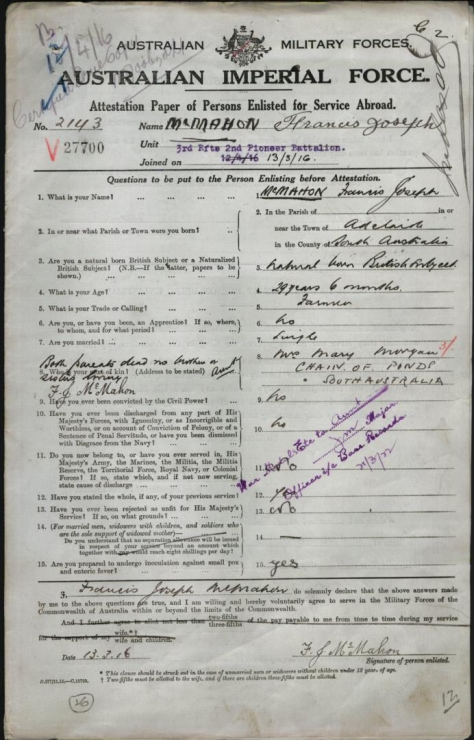 C 2.
12/4/16
AUSTRALIAN MILITARY FORCES.
AUSTRALIAN IMPERIAL FORCE.
Attestation Paper of Persons Enlisted for Service Abroad.
No. 2143 Name McMAHON Francis Joseph
V 27700 Unit 3rd Rfts 2nd Pioneer Battalion.
Joined on 12/4/16 13/3/16.
Questions to be put to the Person Enlisting before Attestation.
1. What is your Name? ... 1. McMAHON Francis Joseph
2. In or near what Parish or Town were you born? ... 2. In the Parish of in or
near the Town of Adelaide
in the County of South Australia
3. Are you a natural born British Subject or a Naturalized
British Subject? (N.B.—If the latter, papers to be
shown.) 3. natural born British Subject
4. What is your Age? ... 4. 29 years 6 months.
5. What is your Trade or Calling? ... 5. Farmer
6. Are you, or have you been, an Apprentice? If so, where,
to whom, and for what period? 6. No
7. Are you married? ... 7. Single
Both parents dead no brother or
sister living
F. J McMahon
8. Who is your next of kin? (Address to be stated) Aunt 8. Mrs Mary Morgan
CHAIN OF PONDS
SOUTH AUSTRALIA
9. Have you ever been convicted by the Civil Power? 9. No
10. Have you ever been discharged from any part of His
Majesty's Forces, with Ignominy, or as Incorrigible and
Worthless, or on account of Conviction of Felony, or of a
Sentence of Penal Servitude, or have you been dismissed
with Disgrace from the Navy? 10. No
11. Do you now belong to, or have you ever served in, His
Majesty's Army, the Marines, the Militia, the Militia
Reserve, the Territorial Force, Royal Navy, or Colonial
Forces? If so, state which, and if not now serving,
state cause of discharge 11. No
Major
Officer i/c Base Records
12. Have you stated the whole, if any, of your previous service? 12.
13. Have you ever been rejected as unfit for His Majesty's
Service? If so, on what grounds? 13. No
14. (For married men, widowers with children, and soldiers who
are the sole support of widowed mother)—
Do you understand that no separation allowance will be issued
in respect of your service beyond an amount which
together with pay would reach eight shillings per day? 14. —
15. Are you prepared to undergo inoculation against small pox
and enteric fever? 15. yes
I, Francis Joseph McMahon do solemnly declare that the above answers made
by me to the above questions are true, and I am willing and hereby voluntarily agree to serve in the Military Forces of the
Commonwealth of Australia within or beyond the limits of the Commonwealth.
And I further agree to allot not less than two-fifths three-fifths of the pay payable to me from time to time during my service
for the support of my wife.*† wife and children.
Date 13.3.16 F. J McMahon
Signature of person enlisted.
* This clause should be struck out in the case of unmarried men or widowers without children under 18 years of age.
† Two-fifths must be allotted to the wife, and if there are children three-fifths must be allotted.
26
12